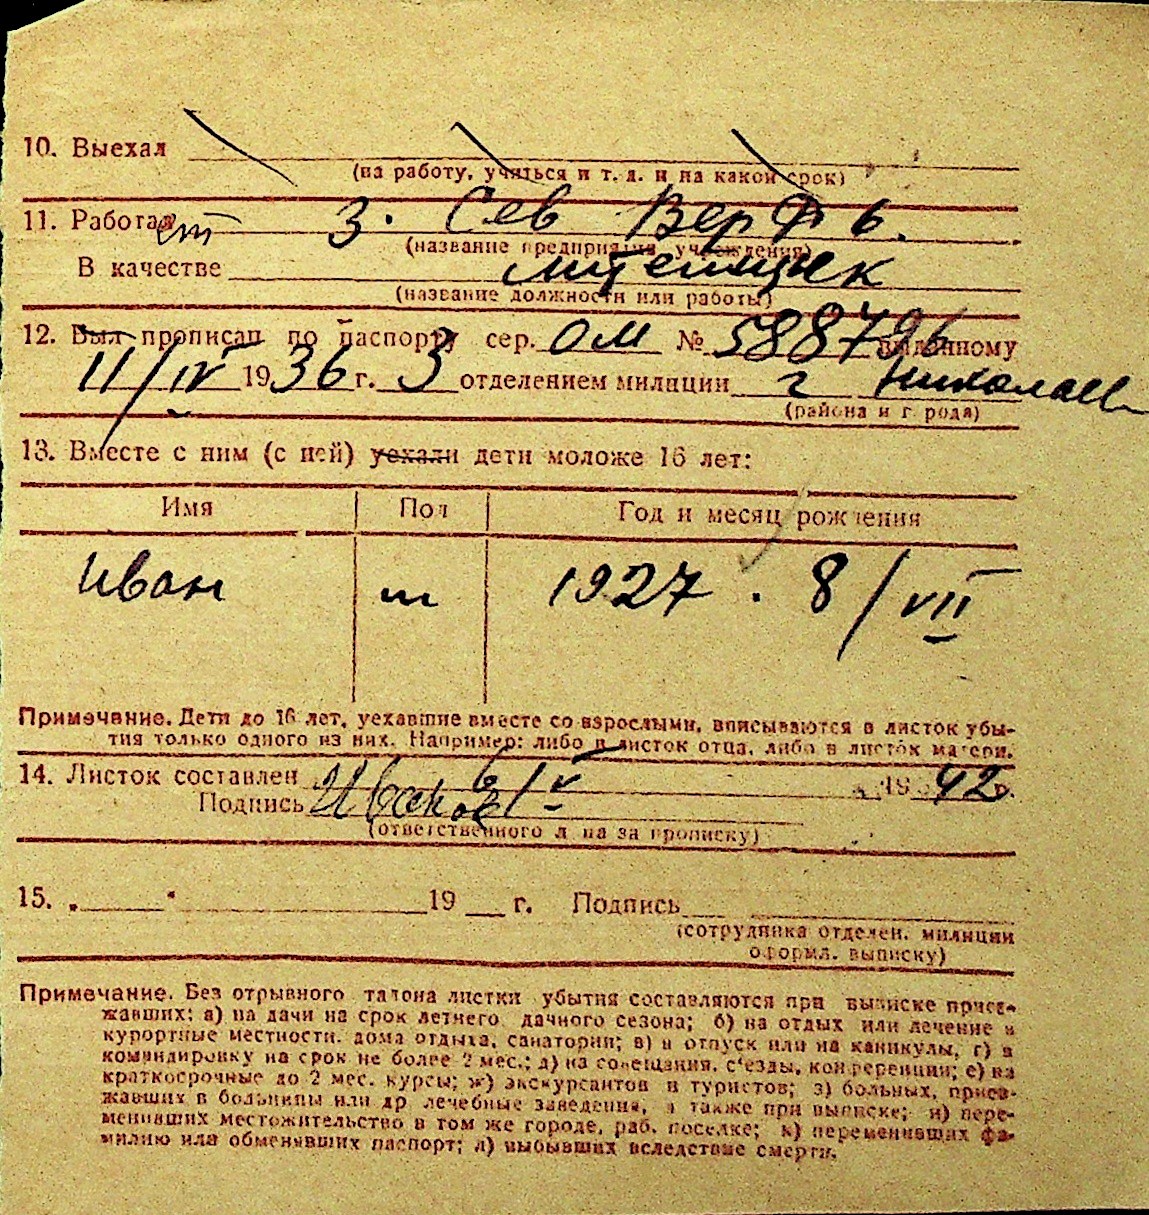 10. Выехал
(на работу, учиться и т. д. и на какой срок)
11. Работает З. Сев Верфь.
(название предприятия, учреждения)
В качестве
(название должности или работы)
12. Был прописан по паспорту сер. ОМ № 588796 выданному
11/IV 1936 г. 3 отделением милиции г Николаев
(района и города)
13. Вместе с ним (с ней) уехали дети моложе 16 лет:
Имя Пол Год и месяц рождения
Иван м 1927. 8/VII
Примечание. Дети до 16 лет, уехавшие вместе со взрослыми, вписываются в листок убы-
тия только одного из них. Например: либо в листок отца, либо в листок матери.
14. Листок составлен 6/V 1942 г.
Подпись Иванов
(ответственного лица за прописку)
15. „ “ 19 г. Подпись
(сотрудника отделен. милиции
оформл. выписку)
Примечание. Без отрывного талона листки убытия составляются при выписке приез-
жавших: а) на дачи на срок летнего дачного сезона; б) на отдых или лечение в
курортные местности, дома отдыха, санатории; в) в отпуск или на каникулы, г) в
командировку на срок не более 2 мес.; д) на совещания, съезды, конференции; е) на
краткосрочные до 2 мес. курсы; ж) экскурсантов и туристов; з) больных, приез-
жавших в больницы или др лечебные заведения, а также при выписке; и) пере-
менивших местожительство в том же городе, раб. поселке; к) переменивших фа-
милию или обменявших паспорт; л) выбывших вследствие смерти.